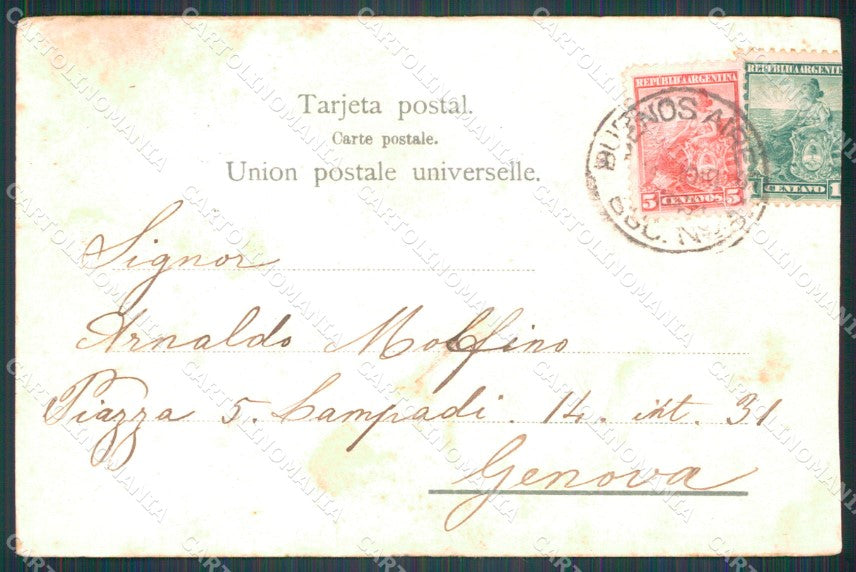 Tarjeta postal.
Carte postale.
Union postale universelle.
REPUBLICA ARGENTINA
5 CENTAVOS 5
REPUBLICA ARGENTIN
1 CENTAVO 1
BUENOS AIRES
SUC. No.
Signor
Arnaldo Molfino
Piazza 5. Lampadi. 14. int. 31
Genova
CARTOLINOMANIA